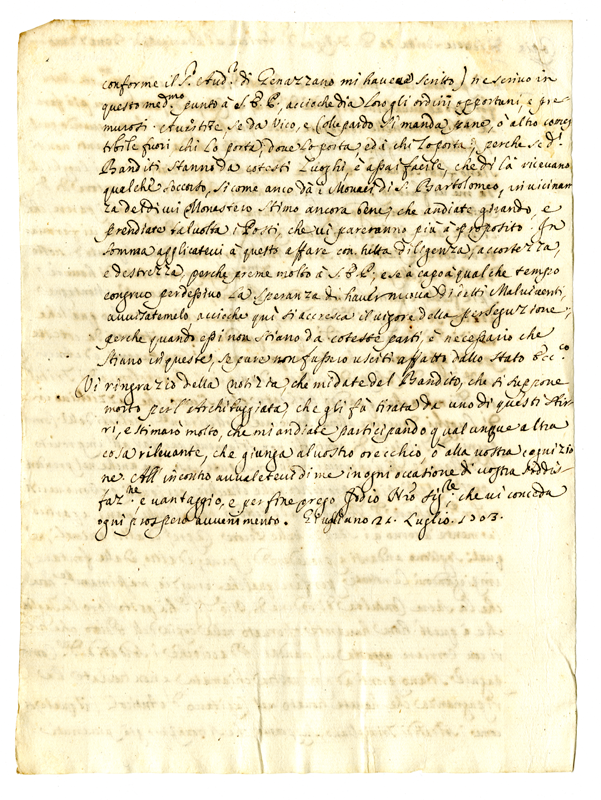 conforme il S.r Aud.r di Genazzano mi havea scritto) ne scrivo in
questo med.mo punto à S. E. P., accioche dia loro gli ordini opportuni, e pre-
murosi. Avvertite se da Vico, e Collepardo si manda pane, ò altro comes-
tibile fuori chi lo porta, dove lo porta, ed à chi lo porta, perche se d.i
Banditi stanno da cotesti luoghi, è assai facile, che di là ricevano
qualche soccorso, sicome anco da i Monaci di S. Bartolomeo, in vicinan-
za del di cui Monastero stimo ancora bene, che andiate girando, e
prendiate talvolta i Posti, che vi pareranno più à proposito. In
somma applicatevi à questo affare con tutta diligenza, accortezza,
e destrezza, perche preme molto à S. E. P., e se à capo à qualche tempo
congruo perdessivo la speranza di haver nuova di detti Malviventi,
avvisatemelo, accioche quì si accresca il vigore della persequzione,
perche quando essi non stiano da coteste parti, è necessario che
stiano in queste, se pure non fussero usciti affatto dallo Stato Ecc.co
Vi ringrazio della notizia, che mi date del Bandito, che si suppone
morto per l'Archibugiata, che gli fù tirata da uno di questi Sbir-
ri, e stimarò molto, che mi andiate participando qualunque altra
cosa rilevante, che giunga al vostro orecchio, ò alla vostra cognizio-
ne. All' incontro avvaletevi di me in ogni occasione di vostra soddis-
faz.ne, e vantaggio, e per fine prego Iddio N'ro Sig.re che vi conceda
ogni prospero avvenimento. Giugliano 21. Luglio 1703.